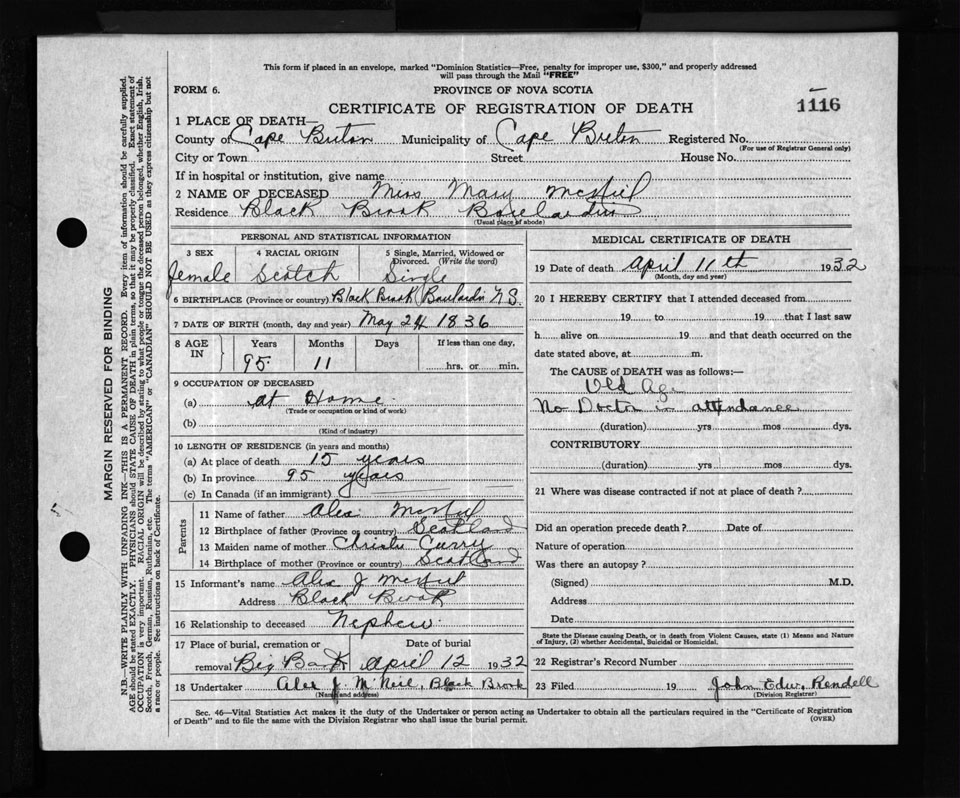 This form if placed in an envelope, marked "Dominion Statistics—Free, penalty for improper use, $300," and properly addressed
will pass through the Mail "FREE"
FORM 6.
PROVINCE OF NOVA SCOTIA
CERTIFICATE OF REGISTRATION OF DEATH
1116
1 PLACE OF DEATH—
County of Cape Breton Municipality of Cape Breton Registered No.
(For use of Registrar General only)
City or Town Street House No.
If in hospital or institution, give name
2 NAME OF DECEASED Miss Mary McNeil
Residence Black Brook Boulardin
(Usual place of abode)
PERSONAL AND STATISTICAL INFORMATION
3 SEX
female
4 RACIAL ORIGIN
Scotch
5 Single, Married, Widowed or Divorced. (Write the word)
Single
6 BIRTHPLACE (Province or country) Black Brook Boulardin N.S.
7 DATE OF BIRTH (month, day and year) May 24 1836
8 AGE IN
Years Months Days If less than one day,
95 11 hrs. or min.
9 OCCUPATION OF DECEASED
(a) at Home
(Trade or occupation or kind of work)
(b)
(Kind of industry)
10 LENGTH OF RESIDENCE (in years and months)
(a) At place of death 15 years
(b) In province 95 years
(c) In Canada (if an immigrant)
Parents
11 Name of father Alex McNeil
12 Birthplace of father (Province or country) Scotland
13 Maiden name of mother Christie Curry
14 Birthplace of mother (Province or country) Scotland
15 Informant's name Alex J McNeil
Address Black Brook
16 Relationship to deceased Nephew
17 Place of burial, cremation or removal Date of burial
Big Bank April 12 1932
18 Undertaker Alex J. McNeil, Black Brook
(Name and address)
MEDICAL CERTIFICATE OF DEATH
19 Date of death April 11th 1932
(Month, day and year)
20 I HEREBY CERTIFY that I attended deceased from
19 to 19 that I last saw
h alive on 19 and that death occurred on the
date stated above, at m.
The CAUSE of DEATH was as follows:—
Old Age
No Doctor in attendance
(duration) yrs mos dys.
CONTRIBUTORY
(duration) yrs mos dys.
21 Where was disease contracted if not at place of death?
Did an operation precede death? Date of
Nature of operation
Was there an autopsy?
(Signed) M.D.
Address
Date
State the Disease causing Death, or in death from Violent Causes, state (1) Means and Nature of Injury, (2) whether Accidental, Suicidal or Homicidal.
22 Registrar's Record Number
23 Filed 19 John Edw. Rendell
(Division Registrar)
Sec. 46—Vital Statistics Act makes it the duty of the Undertaker or person acting as Undertaker to obtain all the particulars required in the "Certificate of Registration
of Death" and to file the same with the Division Registrar who shall issue the burial permit.
(OVER)
MARGIN RESERVED FOR BINDING
N.B.—WRITE PLAINLY WITH UNFADING INK—THIS IS A PERMANENT RECORD. Every item of information should be carefully supplied.
AGE should be stated EXACTLY. PHYSICIANS should STATE CAUSE OF DEATH in plain terms, so that it may be properly classified. Exact statement of
OCCUPATION is very important. RACIAL ORIGIN will be described by stating to what people or tongue the deceased person belonged, whether English, Irish,
Scotch, French, German, Russian, Ruthenian, etc. The terms "AMERICAN" or "CANADIAN" SHOULD NOT BE USED as they express citizenship but not
a race or people. See instructions on back of Certificate.